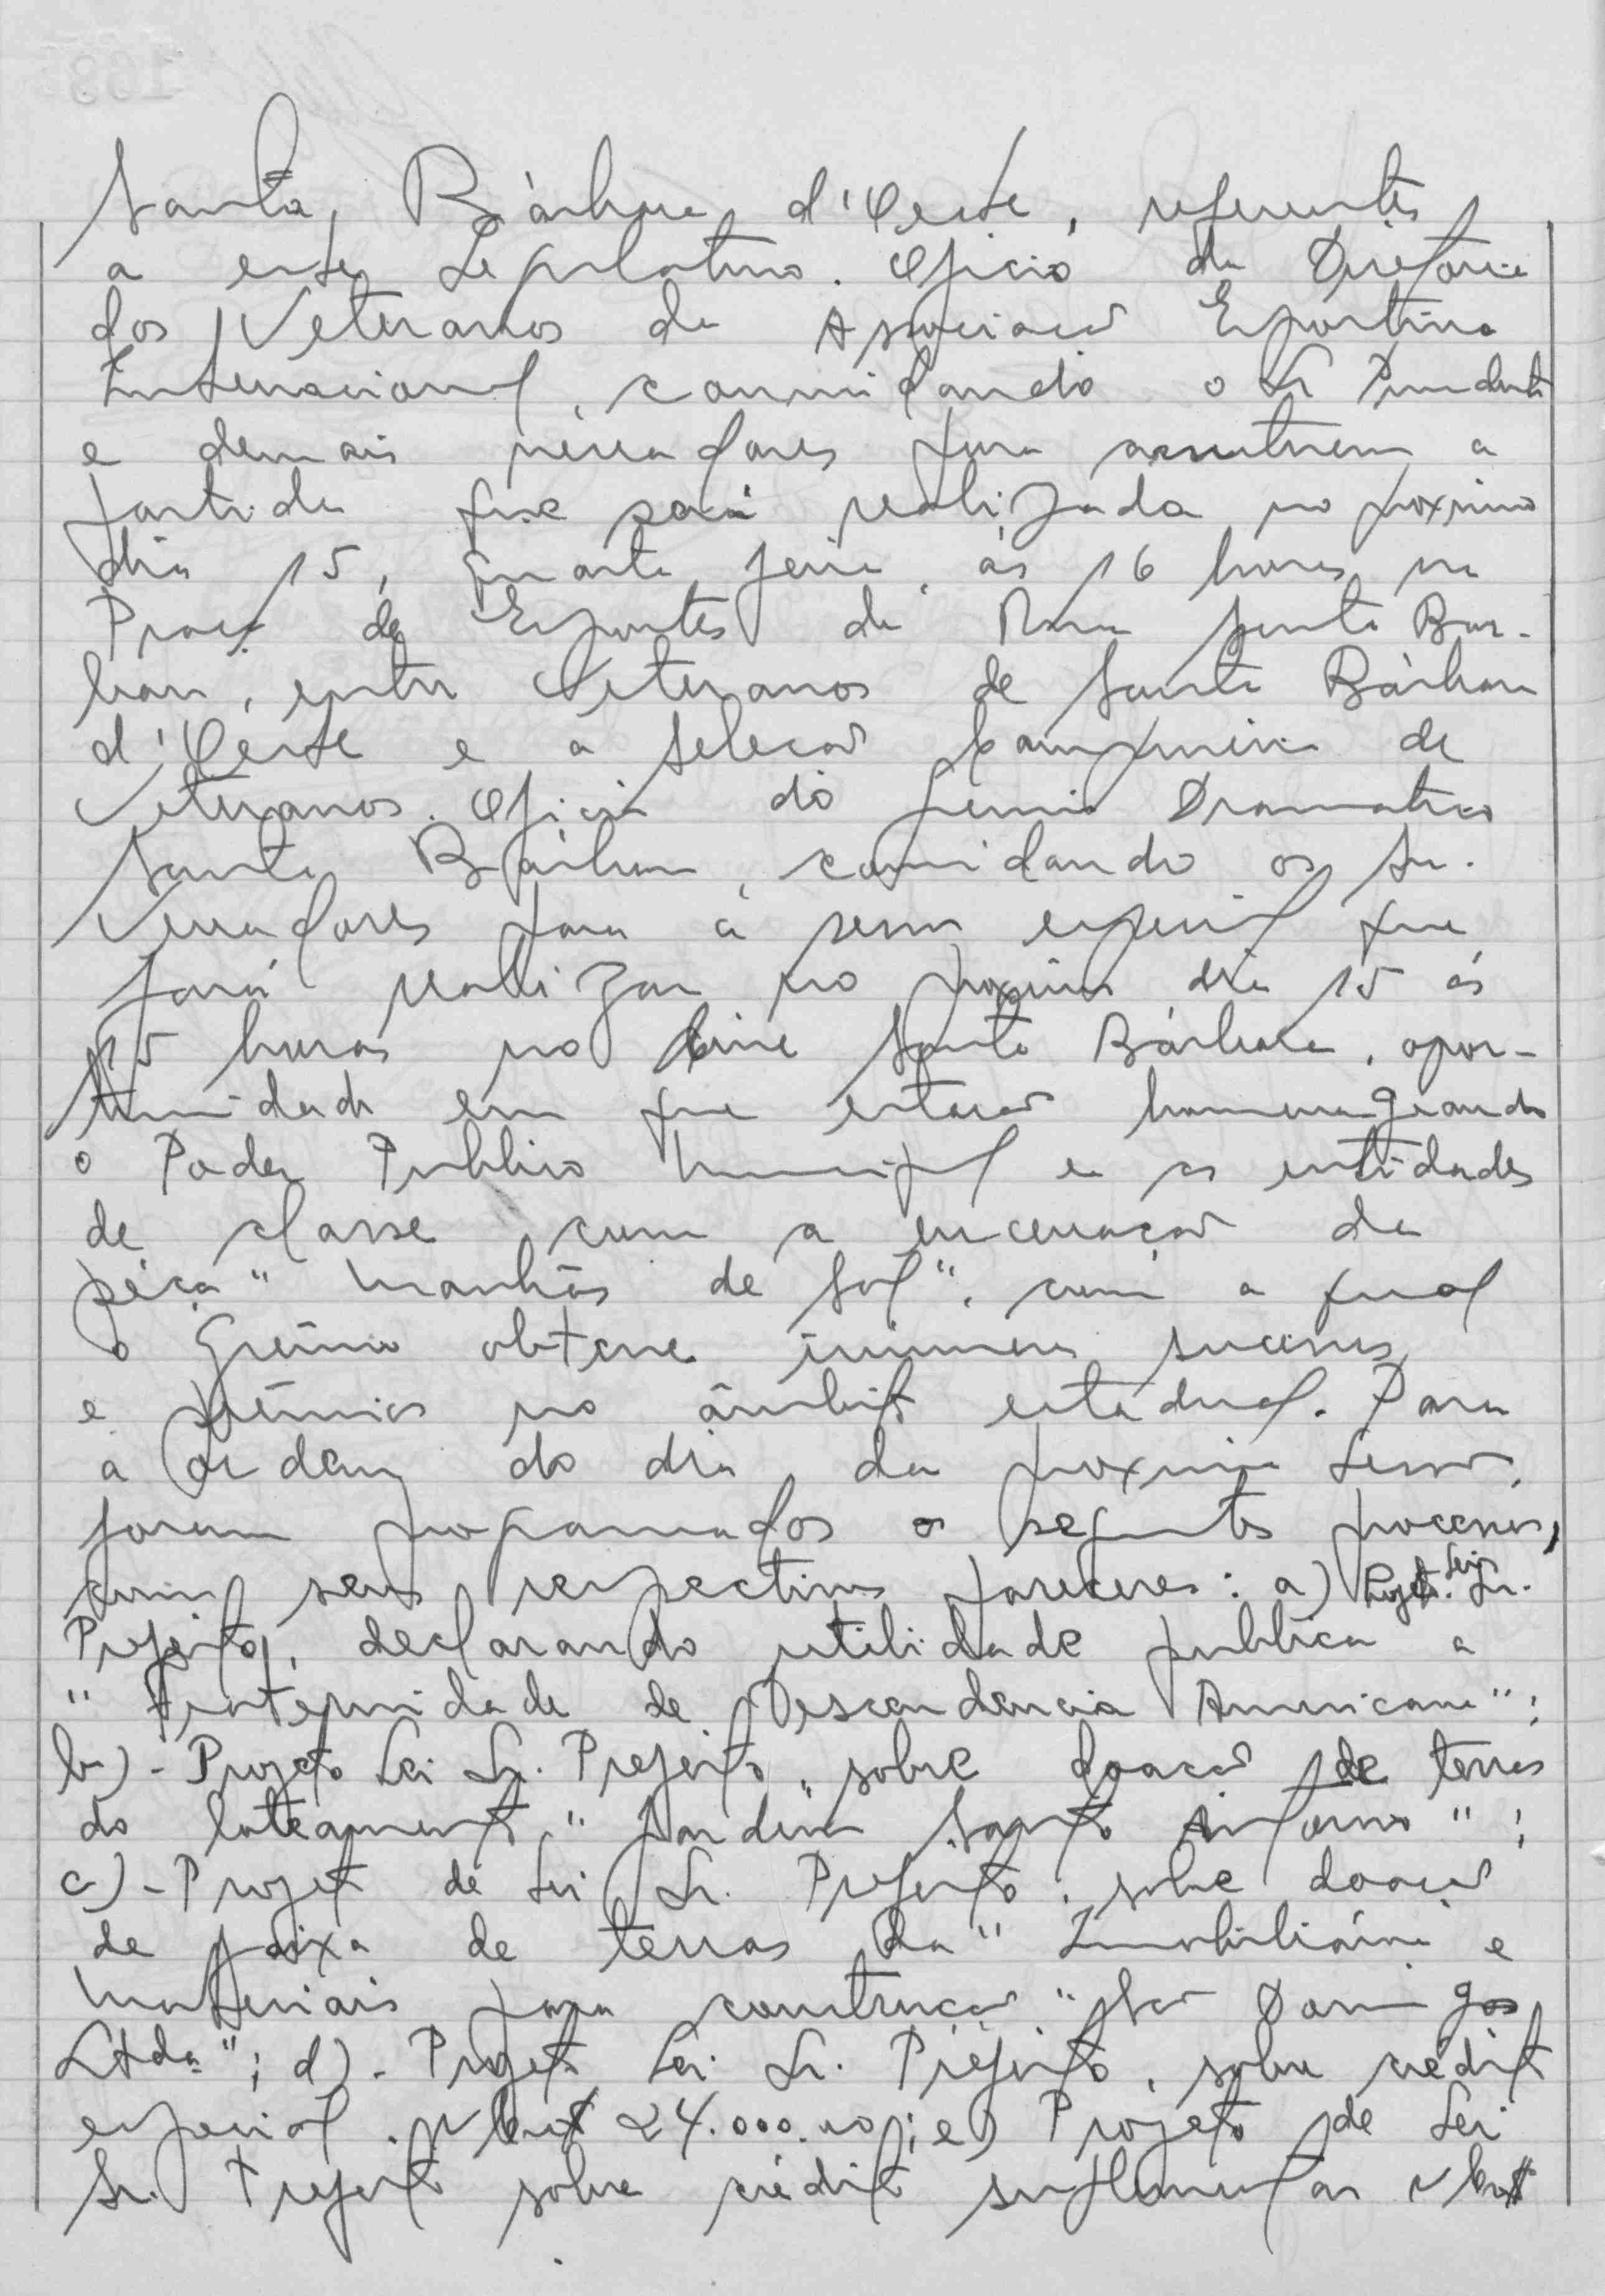 Santa Bárbara d'Oeste, referentes
a este Legislativo. Oficio da Diretoria
dos Veteranos da Associacão Esportiva
Internacional, convidando o Sr Presidente
e demais vereadores para assistirem a
partida que será realizada no proximo
dia 15, quarta feira, ás 16 horas na
Praça de Esportes da Usina Santa Bar-
bara, entre Veteranos de Santa Bárbara
d'Oeste e a Selecão Campineira de
Veteranos. Oficio do Gremio Dramatico
Santa Bárbara, convidando os Srs.
Vereadores para a sessão especial que
fará realizar no proximo dia 15 ás
15 horas no Cine Santa Bárbara, opor-
tunidade em que estarão homenageando
o Poder Publico Municipal e as entidades
de classe com a encenacão da
péça "Manhãs de Sol", com a qual
o Grêmio obteve inúmeros sucessos
e prêmios no âmbito estadual. Para
a Ordem do dia da proxima Sessão,
foram programados os seguintes processos,
com seus respectivos pareceres: a) Projeto Lei Sr.
Prefeito, declarando utilidade publica a
"Fraternidade de Descendencia Americana";
b)- Projeto Lei Sr. Prefeito, sobre doacão de terras
do loteamento "Jardim Santo Antonio";
c)- Projeto de Lei Sr. Prefeito, sobre doacão
de faixa de terras da "Imobiliária e
Materiais para construcão São Domingos
Ltda"; d)- Projeto Lei Sr. Prefeito, sobre crédito
especial, v/ Cr$ 24.000,00; e) Projeto de Lei
Sr. Prefeito sobre crédito suplementar v/ Cr$